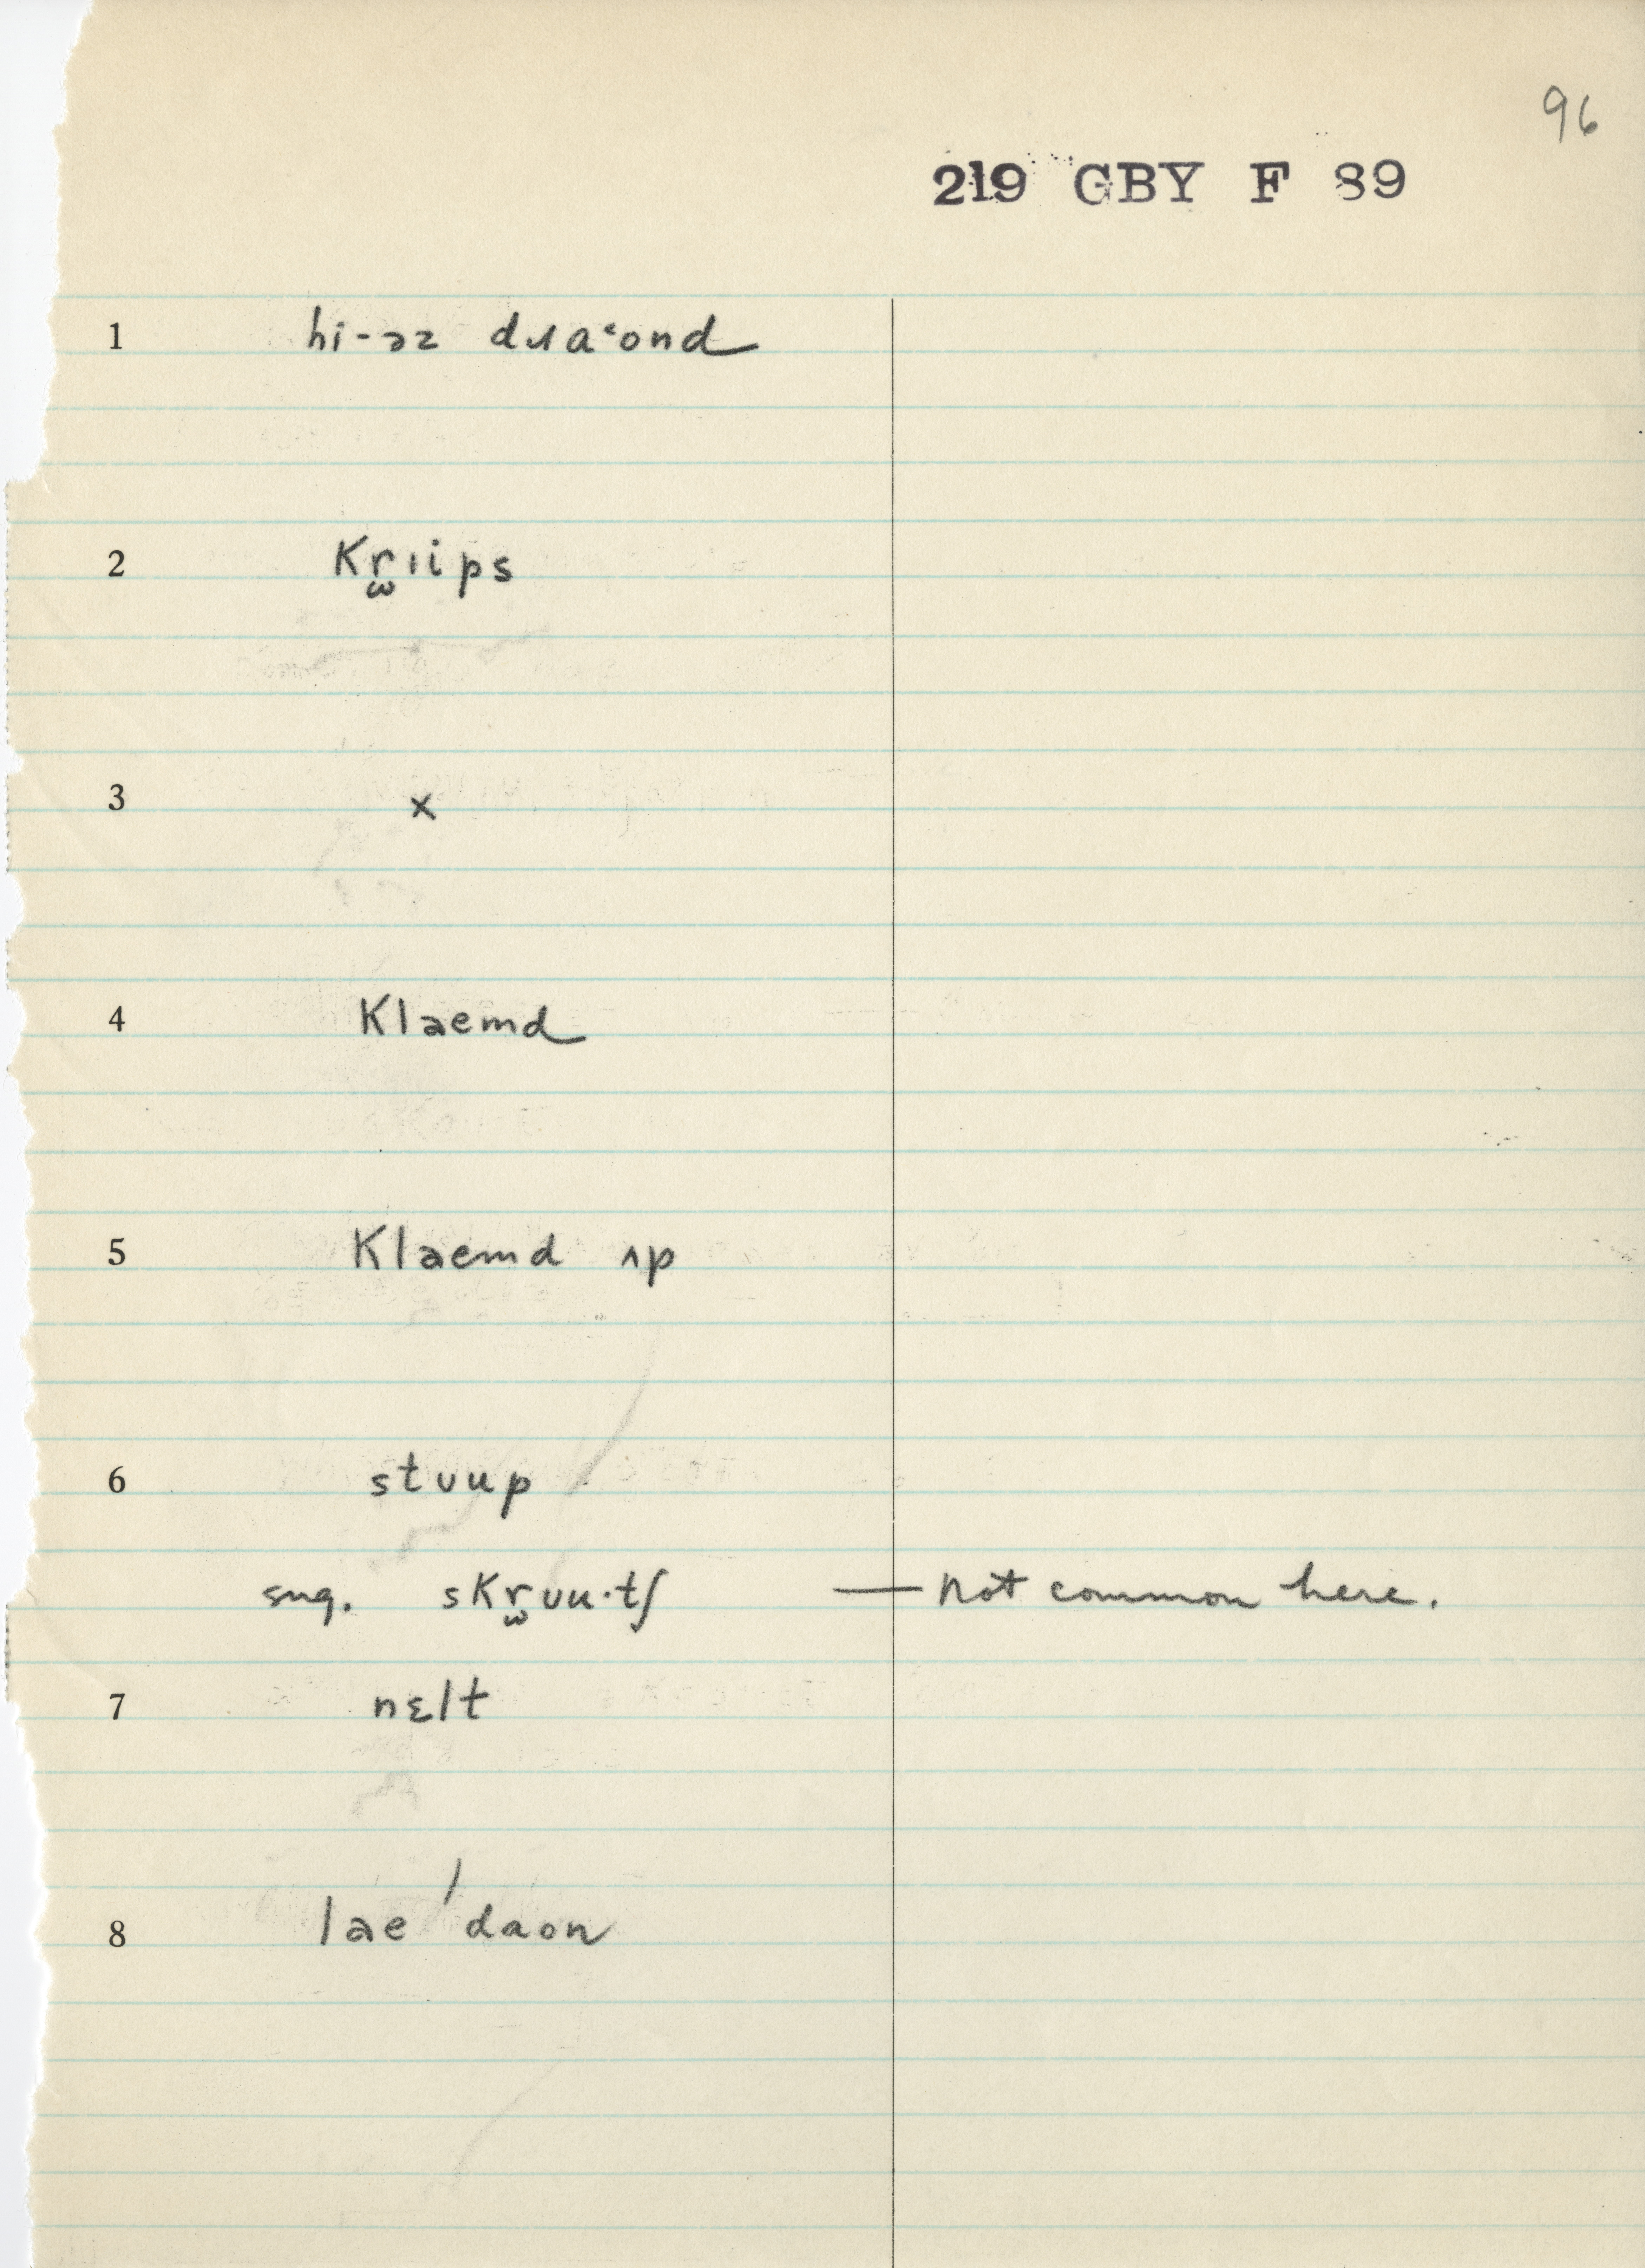 96
219 GBY F 89
1 hi-əz dɹɑ˓ond
2 Kr̫ıips
3 x
4 Klaemd
5 Klaemd ʌp
6 stʊup
sug. sKr̫ʊu·tʃ — not common here.
7 nɛlt
8 lae ˈdaon